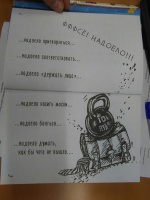 ФФФСЁ! НАДОЕЛО!!!
...надоело притворяться...
...надоело соответствовать...
...надоело «держать лицо»...
...надоело носить маски...
...надоело бояться...
...надоело думать,
как бы чего не вышло...